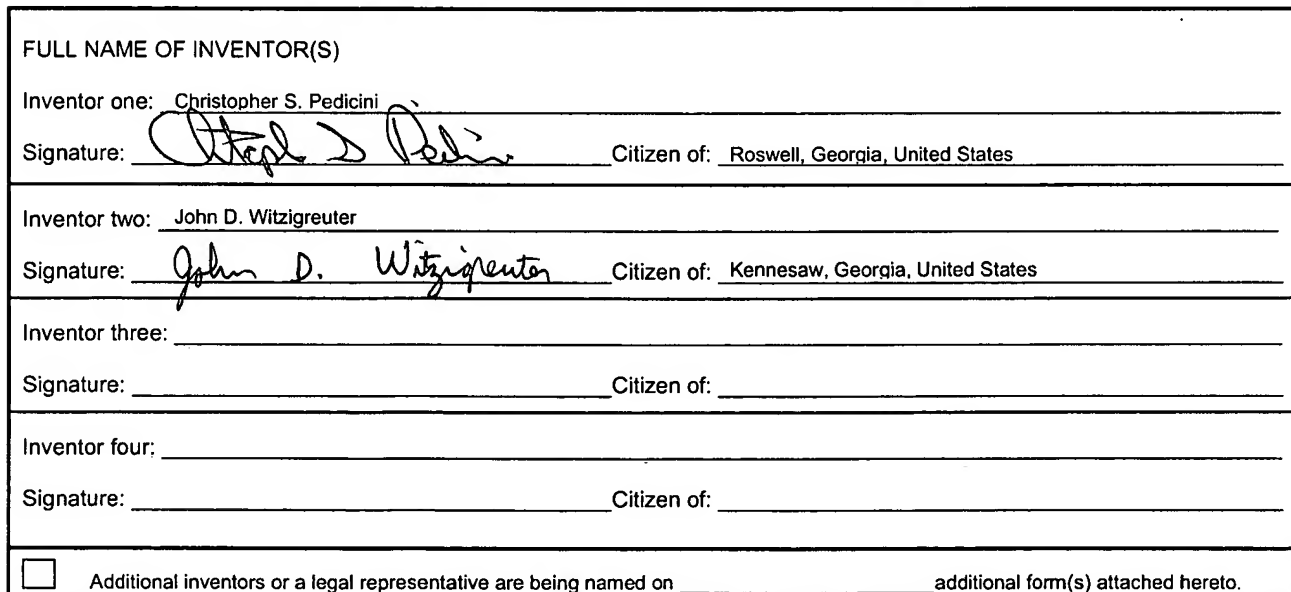 FULL NAME OF INVENTOR(S)
Inventor one: Christopher S. Pedicini
Signature: Christoph S Pedicini Citizen of: Roswell, Georgia, United States
Inventor two: John D. Witzigreuter
Signature: John D. Witzigreuter Citizen of: Kennesaw, Georgia, United States
Inventor three:
Signature: Citizen of:
Inventor four:
Signature: Citizen of:
Additional inventors or a legal representative are being named on additional form(s) attached hereto.